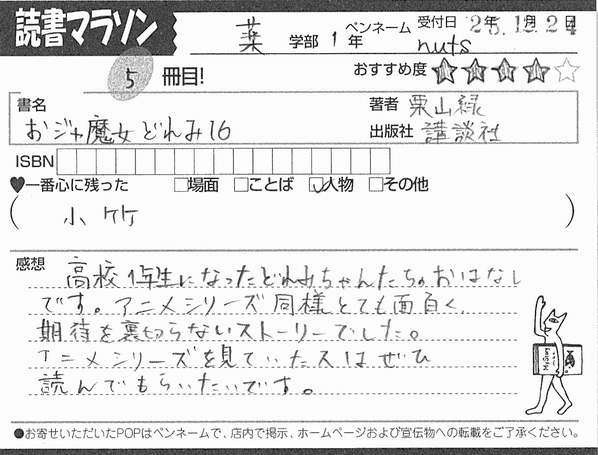 読書マラソン
薬 学部 1 年
ペンネーム nuts
受付日
5 冊目!
おすすめ度 ★★★★☆
書名
おジャ魔女どれみ16
著者 栗山緑
出版社 講談社
ISBN
♥一番心に残った □場面 □ことば ☑人物 □その他
( 小竹 )
感想
高校1年生になったどれみちゃんたちのおはなし
です。アニメシリーズ同様とても面白く
期待を裏切らないストーリーでした。
アニメシリーズを見ていた人はぜひ
読んでもらいたいです。
●お寄せいただいたPOPはペンネームで、店内で掲示、ホームページおよび宣伝物への転載をご了承ください。